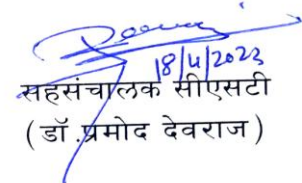 18/4/2023
सहसंचालक सीएसटी
(डॉ.प्रमोद देवराज)